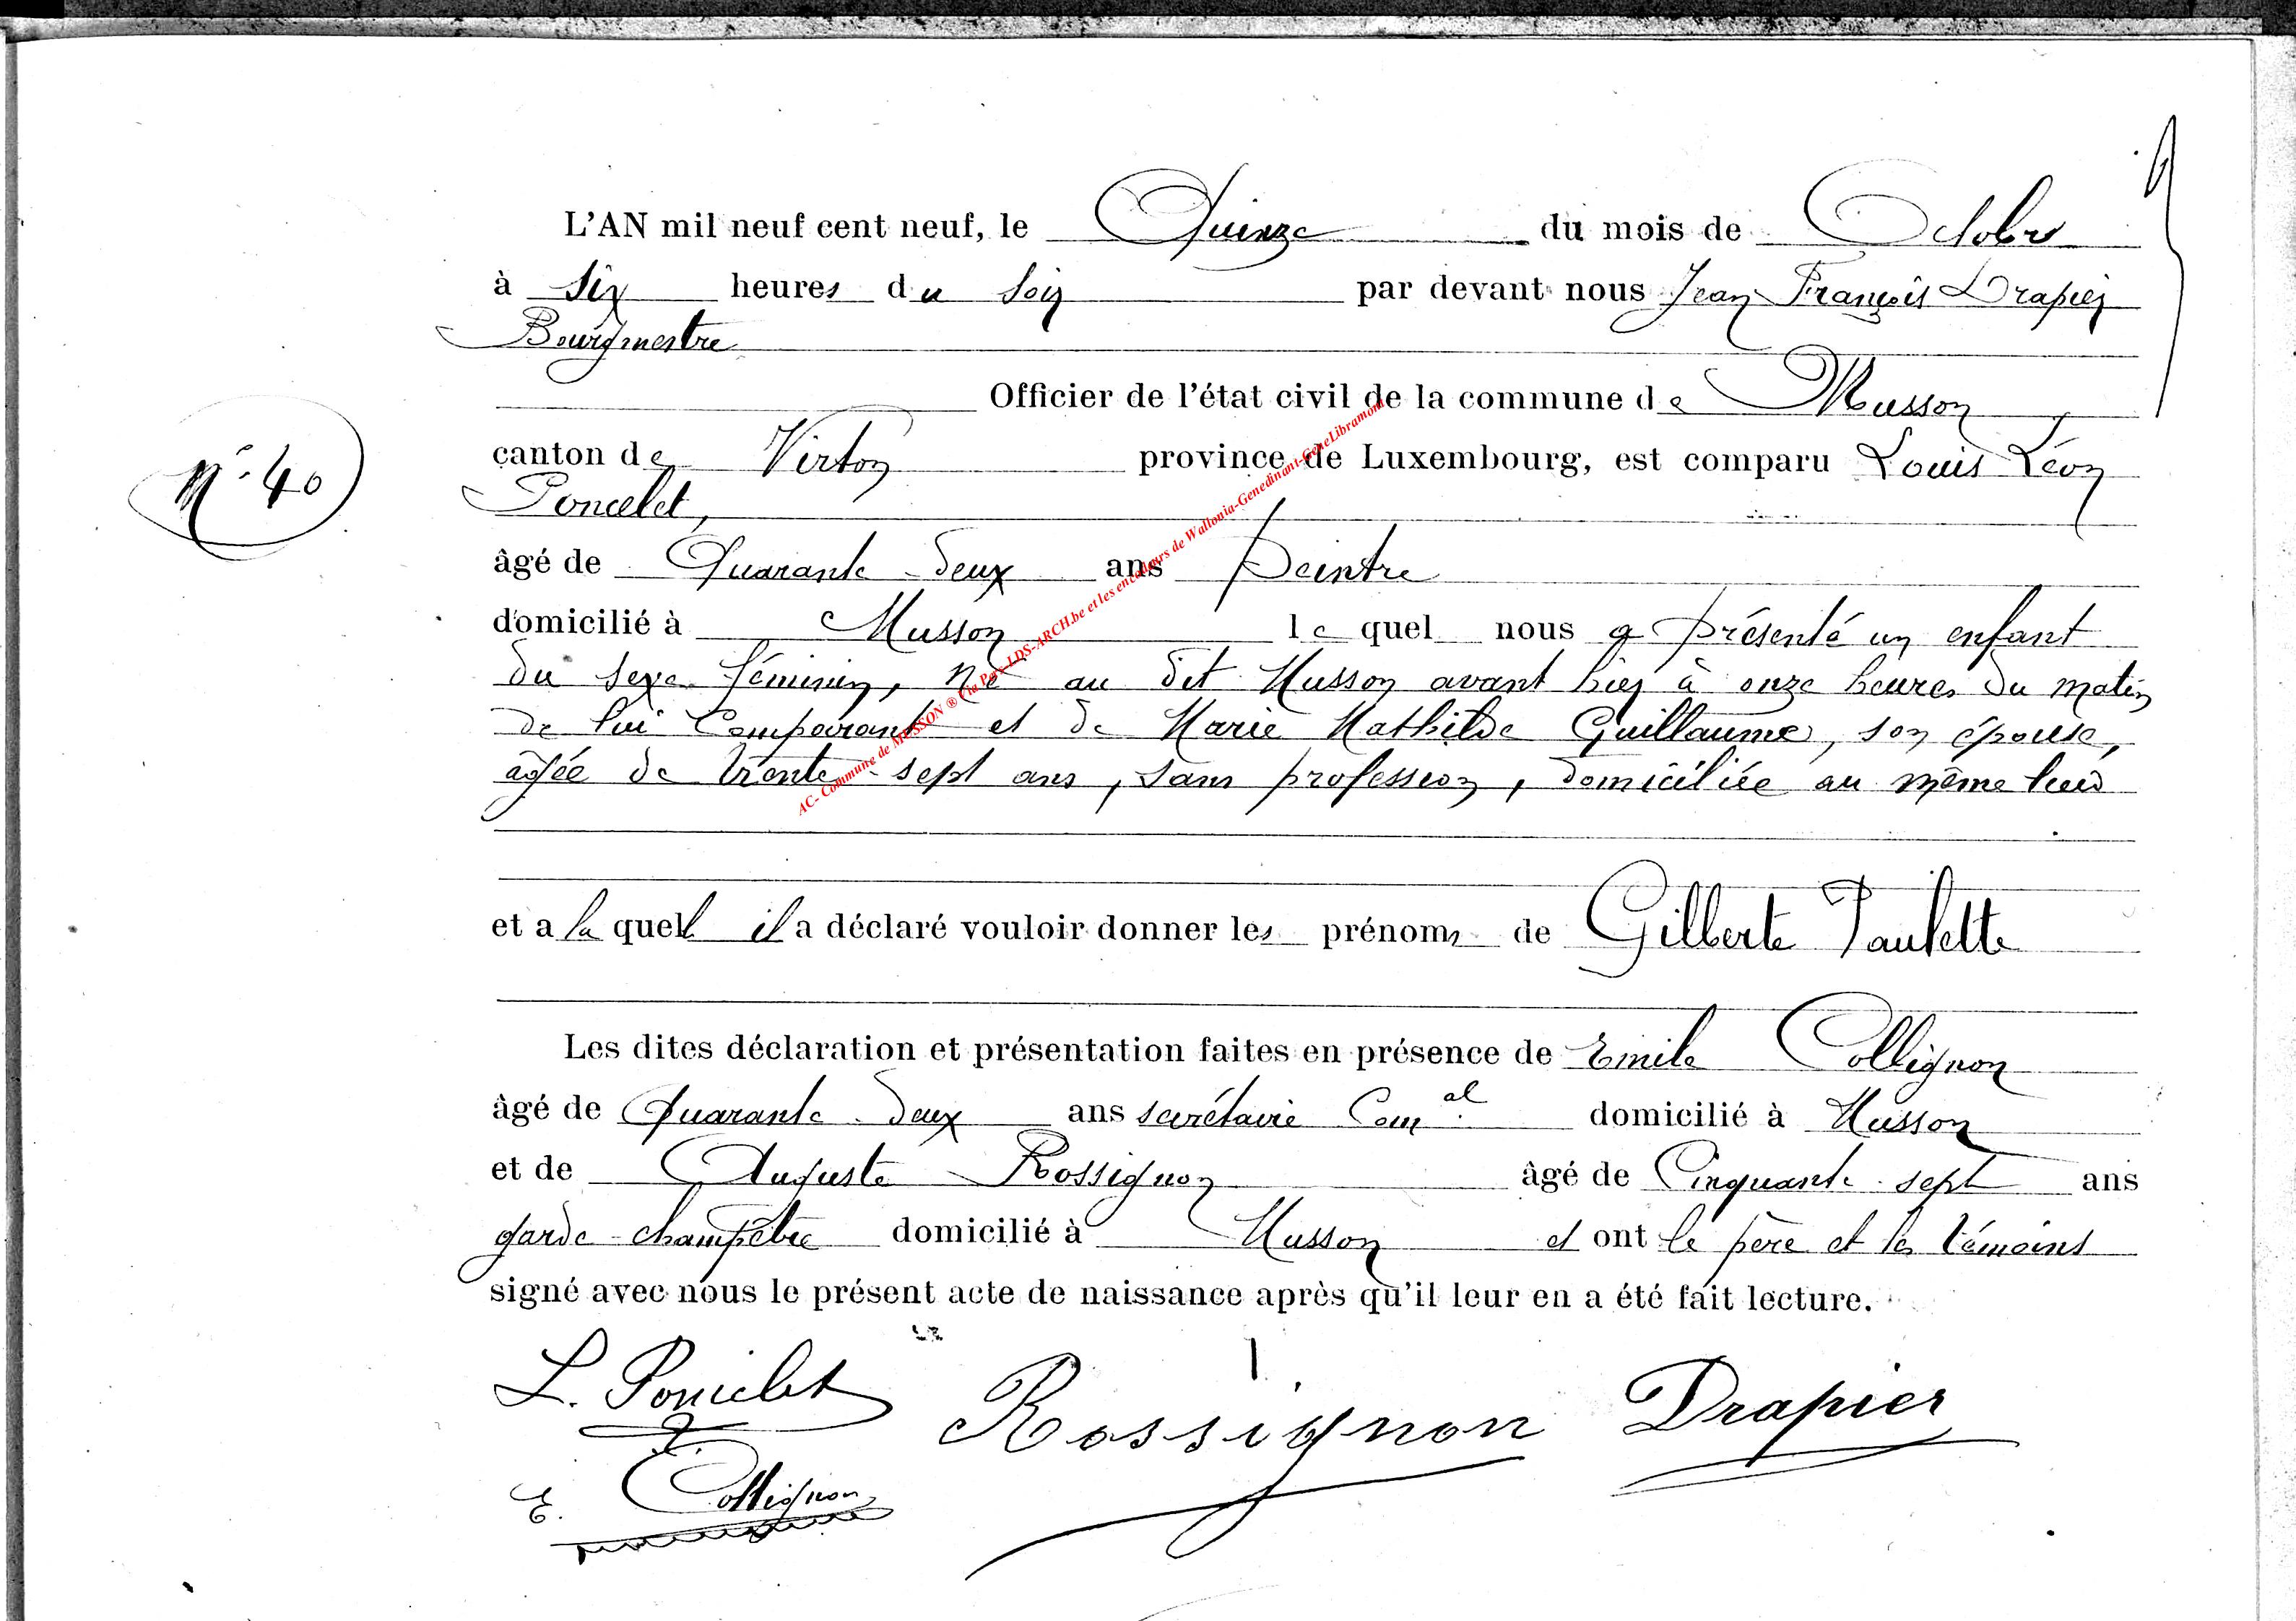 L'AN mil neuf cent neuf, le Quinze du mois de Octobre
à six heures du soir par devant nous Jean François Drapier
Bourgmestre
Officier de l'état civil de la commune de Musson
N° 40
canton de Virton province de Luxembourg, est comparu Louis Léon
Poncelet,
âgé de Quarante-deux ans Peintre
domicilié à Musson lequel nous a présenté un enfant
du sexe féminin, né au dit Musson avant hier à onze heures du matin
de lui Comparant et de Marie Mathilde Guillaume, son épouse,
âgée de trente-sept ans, sans profession, domiciliée au même lieu
et a laquelle il a déclaré vouloir donner les prénoms de Gilberte Paulette
Les dites déclaration et présentation faites en présence de Emile Collignon
âgé de Quarante-deux ans secrétaire Com.al domicilié à Musson
et de Auguste Rossignon âgé de Cinquante-sept ans
garde-champêtre domicilié à Musson et ont le père et les témoins
signé avec nous le présent acte de naissance après qu'il leur en a été fait lecture.
L. Poncelet Rossignon Drapier
E. Collignon
AC- Commune de MUSSON ® Via Part-LDS-ARCH.be et les encodeurs de Wallonia-Genedinant-GeneLibramont